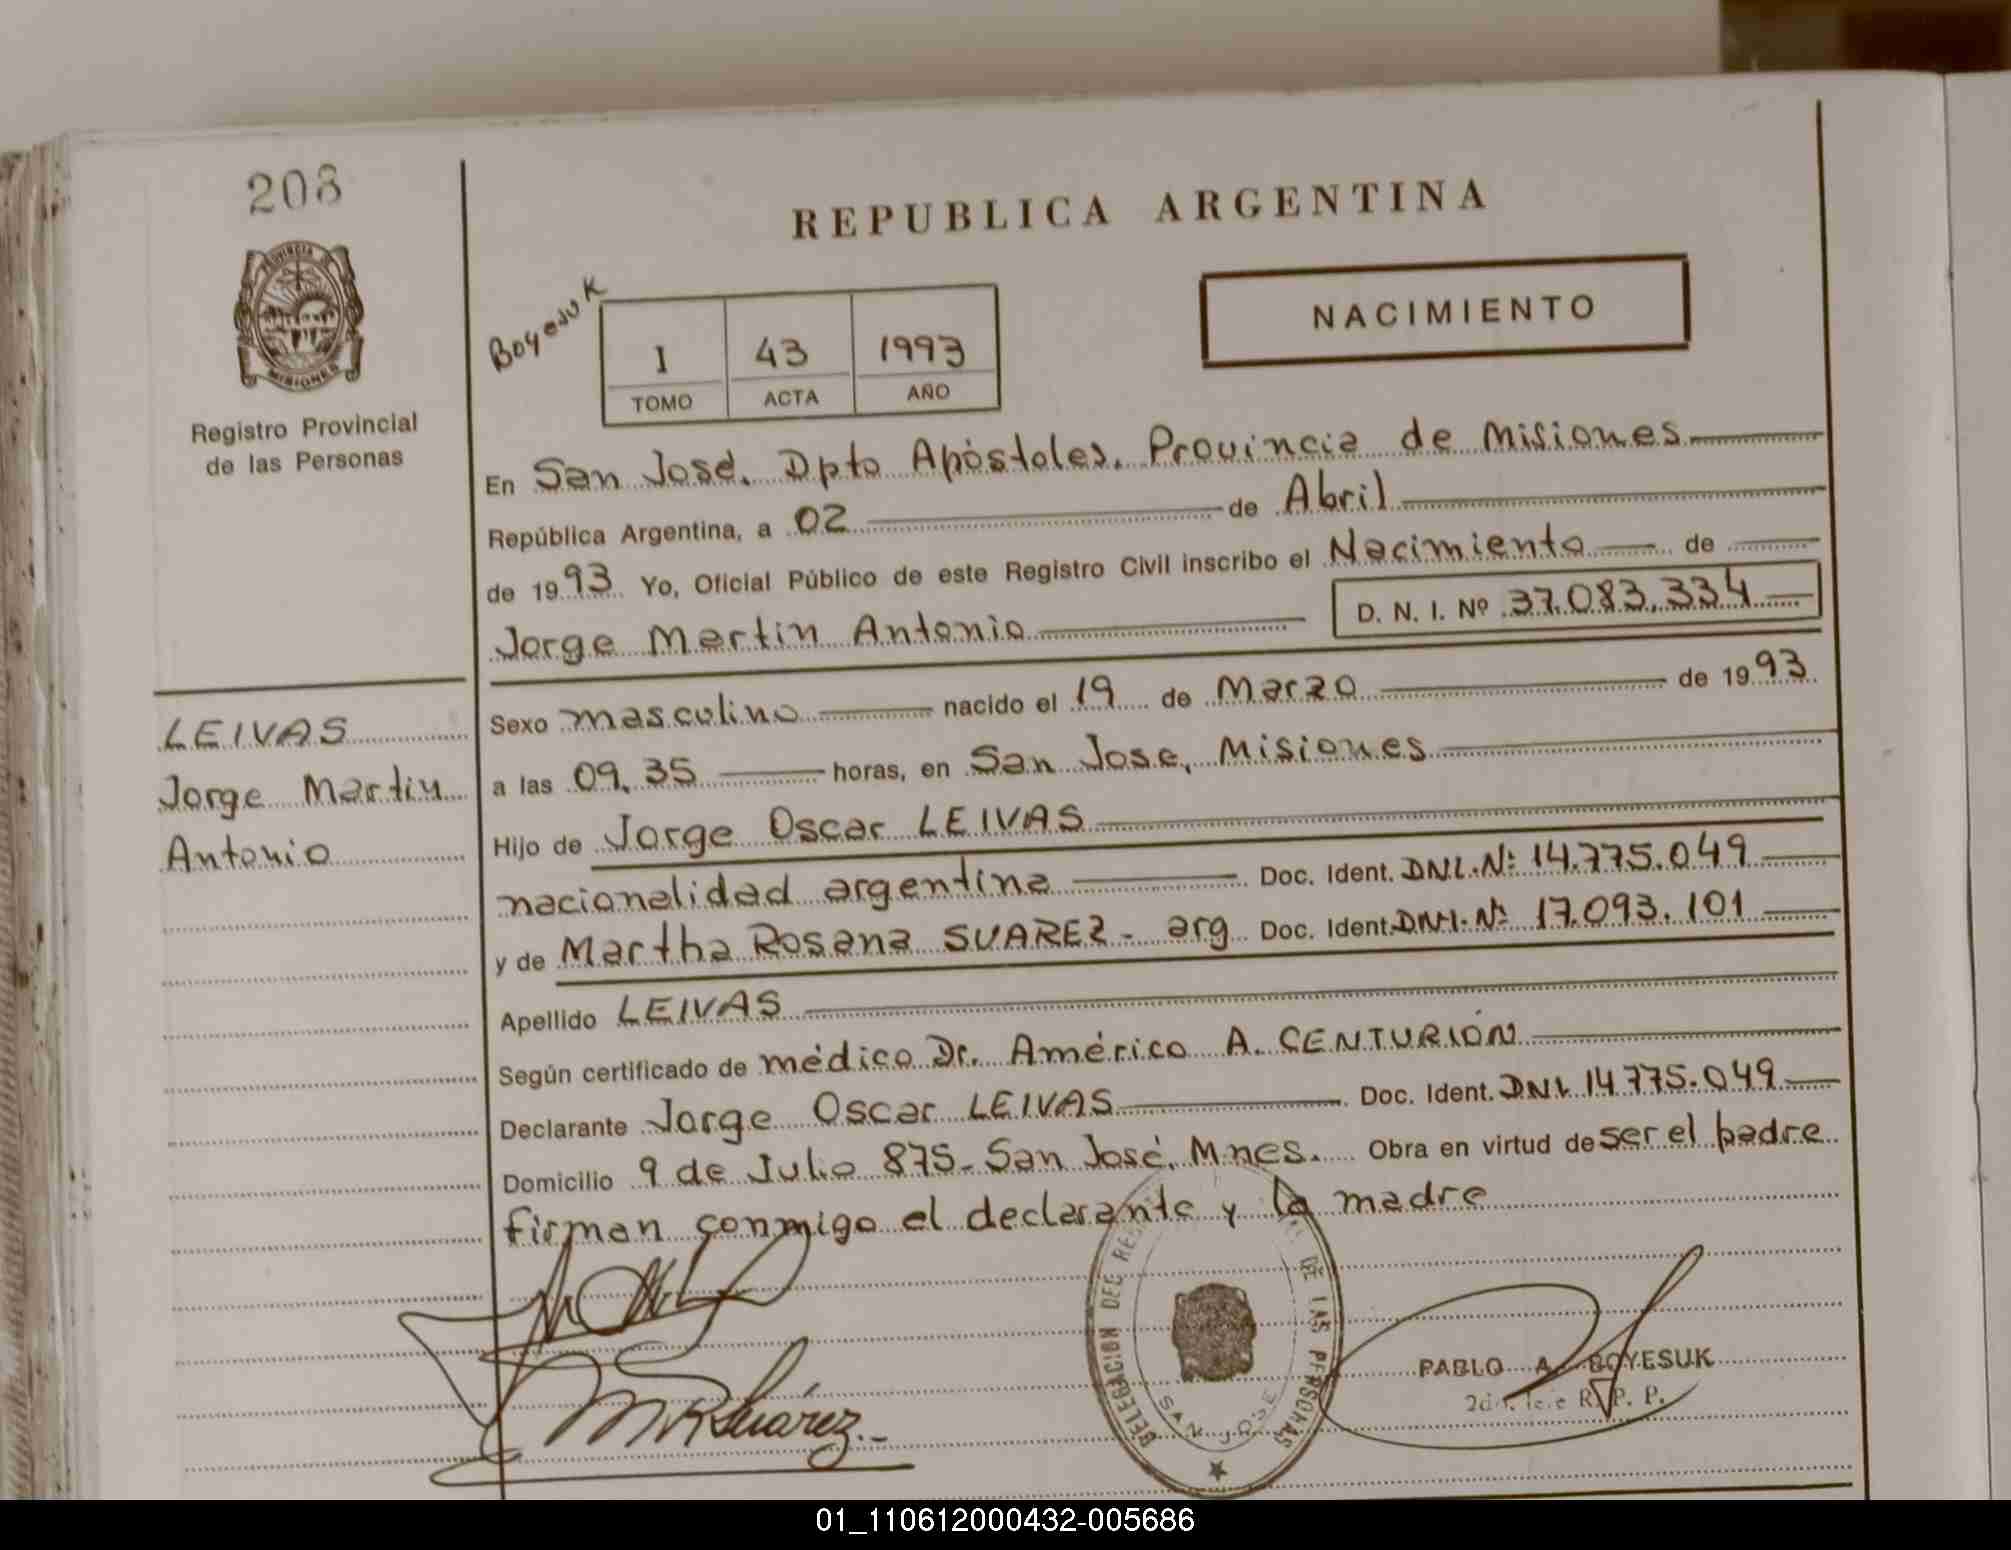 208
PROVINCIA DE
MISIONES
Registro Provincial
de las Personas
REPUBLICA ARGENTINA
NACIMIENTO
Boyesuk
1 43 1993
TOMO ACTA AÑO
En San José. Dpto Apóstoles. Provincia de Misiones
República Argentina, a 02 de Abril
de 1993 Yo, Oficial Público de este Registro Civil inscribo el Nacimiento de
Jorge Martin Antonio D. N. I. Nº 37.083.334
LEIVAS
Jorge Martin
Antonio
Sexo masculino nacido el 19 de Marzo de 1993
a las 09.35 horas, en San Jose, Misiones
Hijo de Jorge Oscar LEIVAS
nacionalidad argentina Doc. Ident. DNI.Nº 14.775.049
y de Martha Rosana SUAREZ - arg Doc. Ident. DNI.Nº 17.093.101
Apellido LEIVAS
Según certificado de médico Dr. Américo A. CENTURIÓN
Declarante Jorge Oscar LEIVAS Doc. Ident. DNI 14.775.049
Domicilio 9 de Julio 875- San José. Mnes. Obra en virtud de ser el padre
firman conmigo el declarante y la madre
M R Suárez.-
DELEGACION DEL DE LAS PERSONAS
SAN JOSE
PABLO A. BOYESUK
R. P. P.
01_110612000432-005686